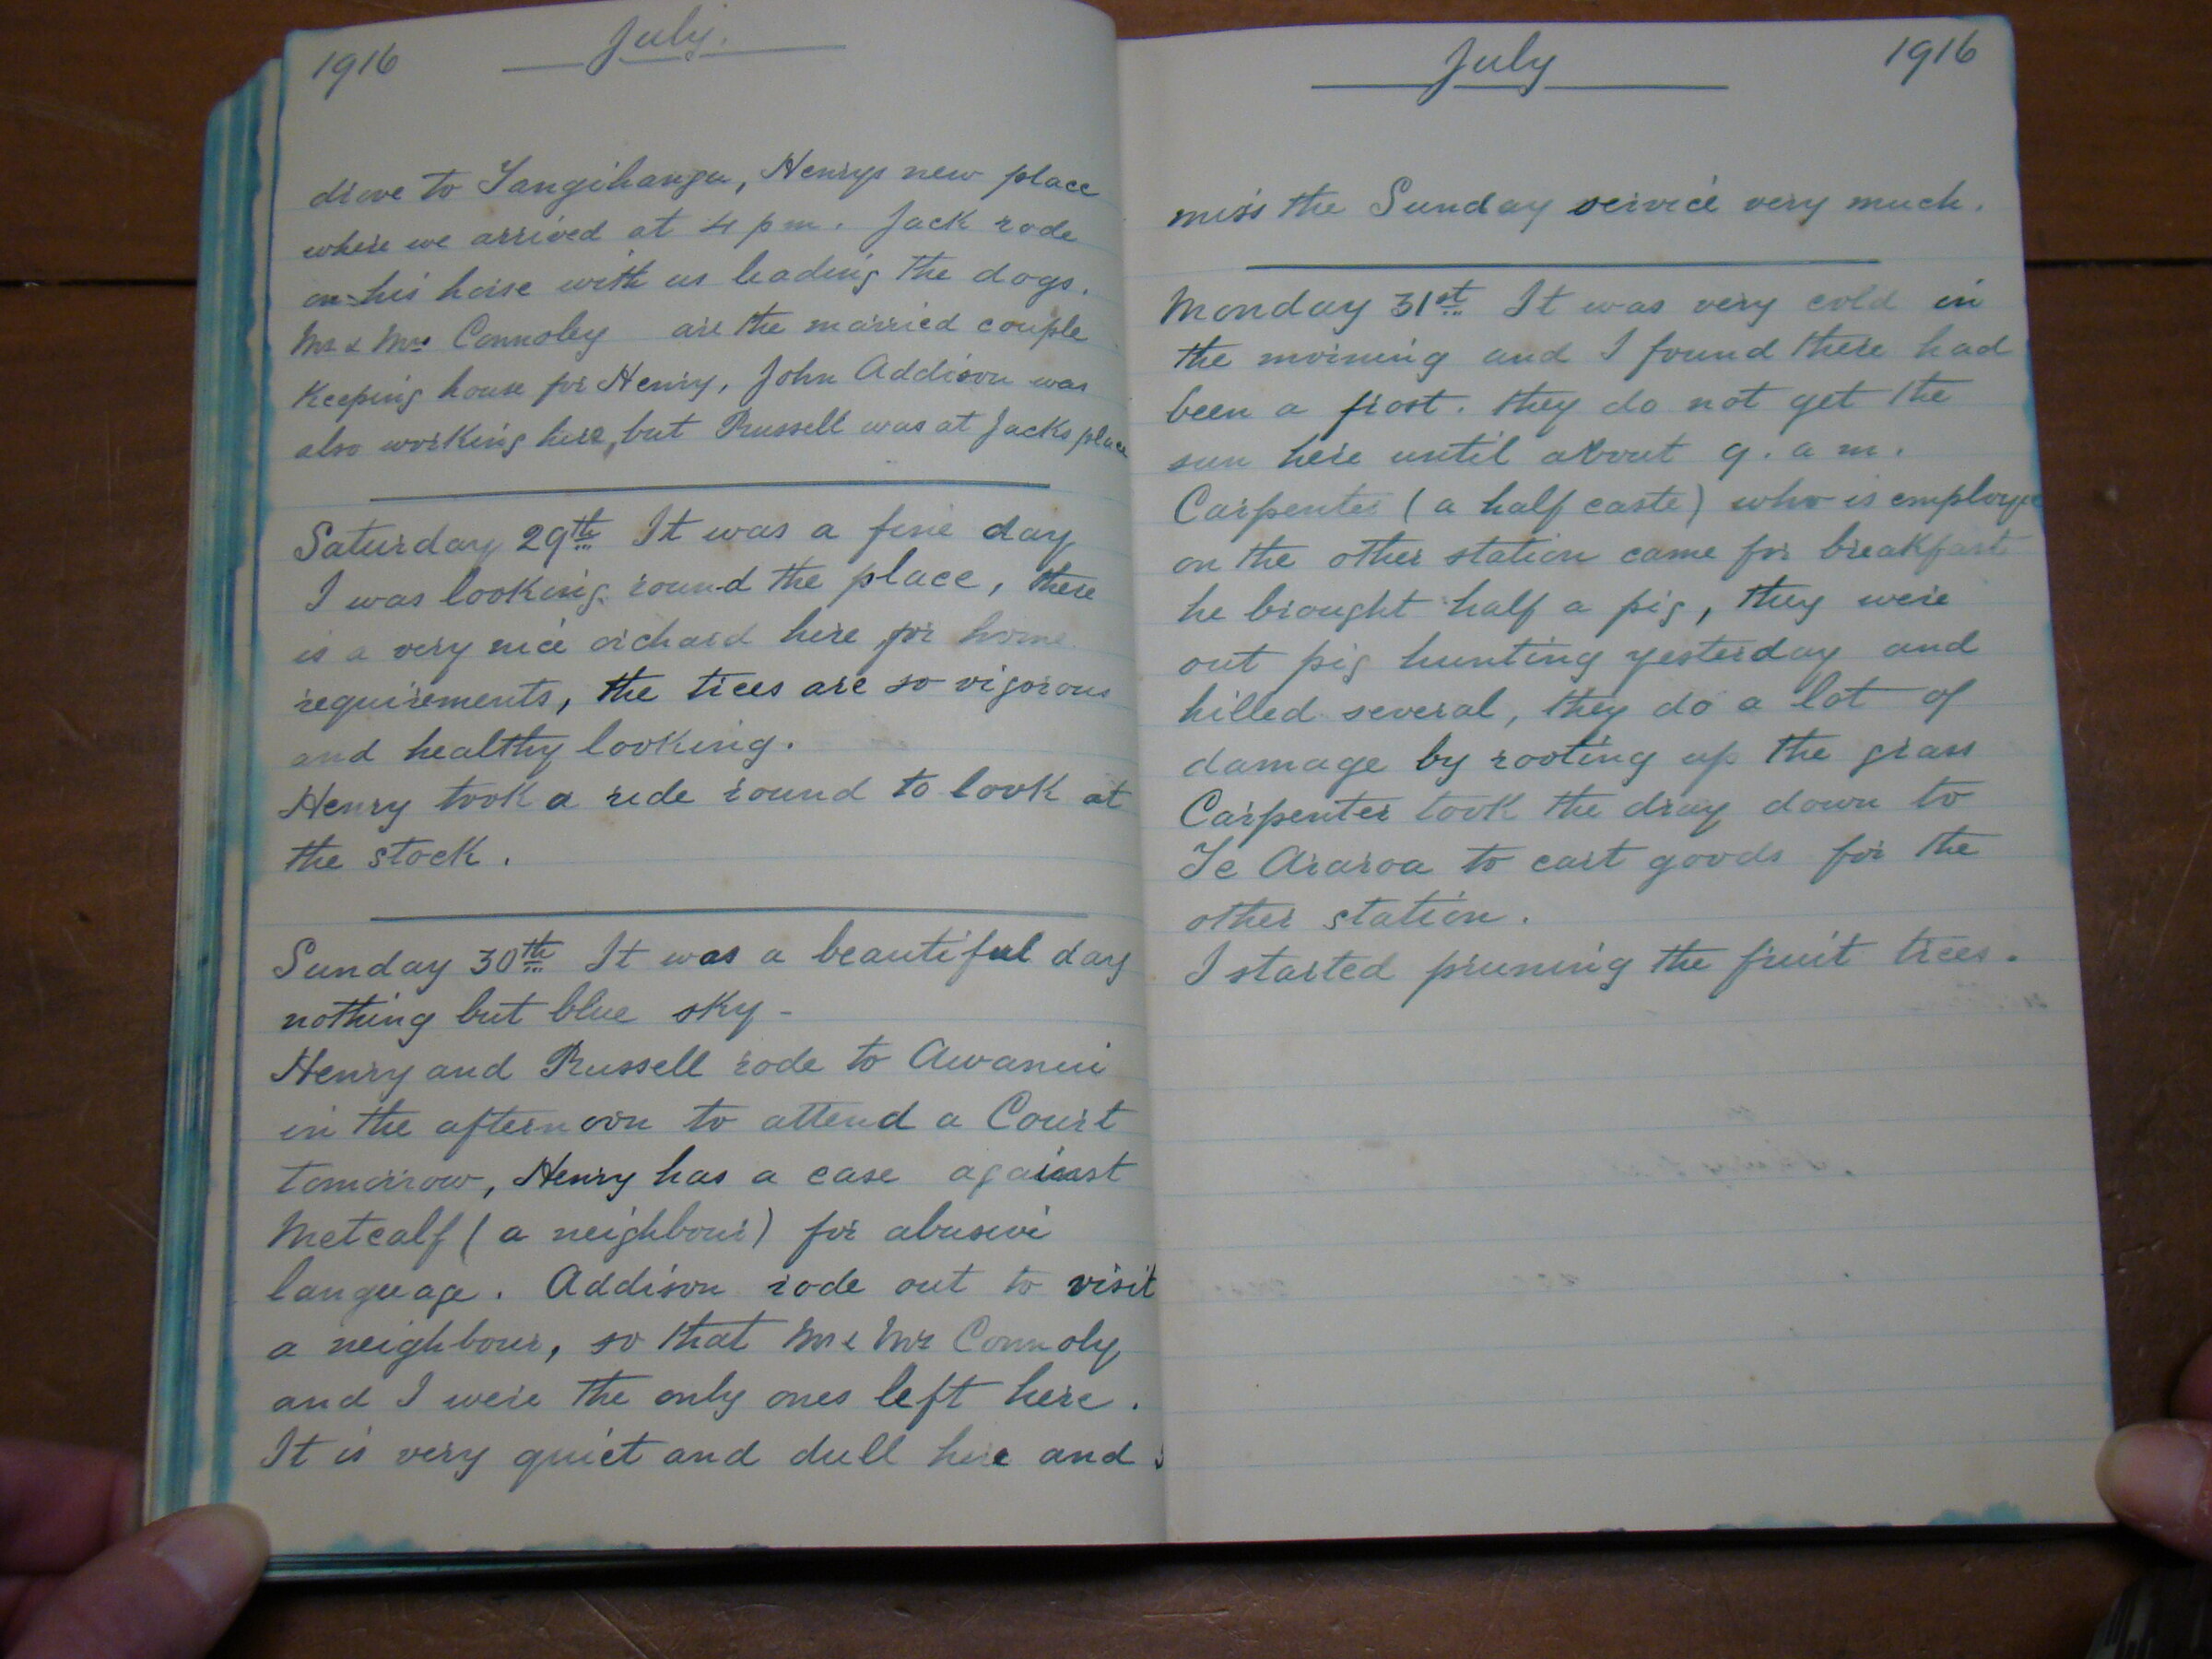 1916 July.
drove to Tangihanga, Henrys new place
where we arrived at 4 pm. Jack rode
on his horse with us leading the dogs.
Mr & Mrs Connoley are the married couple
Keeping house for Henry, John Addison was
also working here, but Russell was at Jacks place
Saturday 29th It was a fine day
I was looking round the place, there
is a very nice orchard here for home
requirements, the trees are so vigorous
and healthy looking.
Henry took a ride round to look at
the stock.
Sunday 30th It was a beautiful day
nothing but blue sky -
Henry and Russell rode to Awanui
in the afternoon to attend a Court
tomorrow, Henry has a case against
Metcalf (a neighbour) for abusive
language. Addison rode out to visit
a neighbour, so that Mr & Mrs Connoly
and I were the only ones left here.
It is very quiet and dull here and I
July 1916
miss the Sunday service very much.
Monday 31st It was very cold in
the morning and I found there had
been a frost. they do not get the
sun here until about 9. a m.
Carpenter (a half caste) who is employed
on the other station came for breakfast
he brought half a pig, they were
out pig hunting yesterday and
killed several, they do a lot of
damage by rooting up the grass
Carpenter took the dray down to
Te Araroa to cart goods for the
other station.
I started pruning the fruit trees.